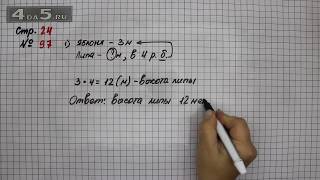 4DA5.RU
Стр. 24
№ 97
1) Яблоня - 3 м
Липа - ? м, в 4 р. б.
3 * 4 = 12 (м) - высота липы
Ответ: высота липы 12 мет